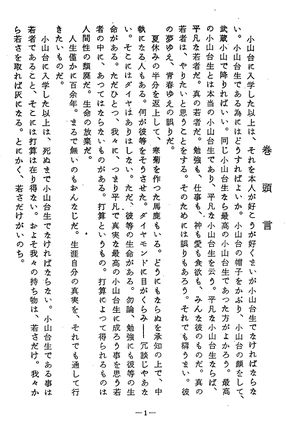 巻頭言
小山台に入学した以上は、それを本人が好こうが好くまいが小山台生でなければならな
い。小山台生であるためにはどうすればよいか。小山台の帽子をかぶり、小山台の顔をして、
武蔵小山で降りればいい。同じ小山台生なら最高の小山台生であった方がよかろう。最高
の小山台生とは本当の小山台生であり、平凡な小山台生を云う。平凡な小山台生ならば、
平凡な若者だ。真の若者だ。勉強も、仕事も、神も愛も食欲も、みんな彼のものだ。真の
若者は、やりたいと思うことをする。そのためには誤りもあろう。それでも構うまい。彼
の夢ゆえ、青春ゆえの誤りだ。
夏休みの半分を返上して、寒菊を作った馬鹿もいる。どうにもならぬを承知の上で、中
執になる人もある。何が彼等をそうさせた。ダイヤモンドに目がくらみ――冗談じゃあな
い。そこにはダイヤはありはしない。ただ、彼等の生命がある。勿論、勉強にも彼等の生
命がある。ただひとつ、我々に、つまり平凡で真実な最高の小山台生に成ろう事を思う若
者の中に、あってはならないものがある。打算というもの。打算によって得られるものは
人間性の頽廃だ。生命の放棄だ。
人生僅かに百余年。まるで無いのもおんなじだ。生涯自分の真実を、それでも通して行
きたいものだ。
小山台に入学した以上は、死ぬまで小山台生でなければならない。小山台生である事は
若者であること、そこには打算は在り得ない。およそ我々の持ち物は、若さだけ。我々か
ら若さを取れば灰になる。とにかく、若さだけがいのち。
―1―